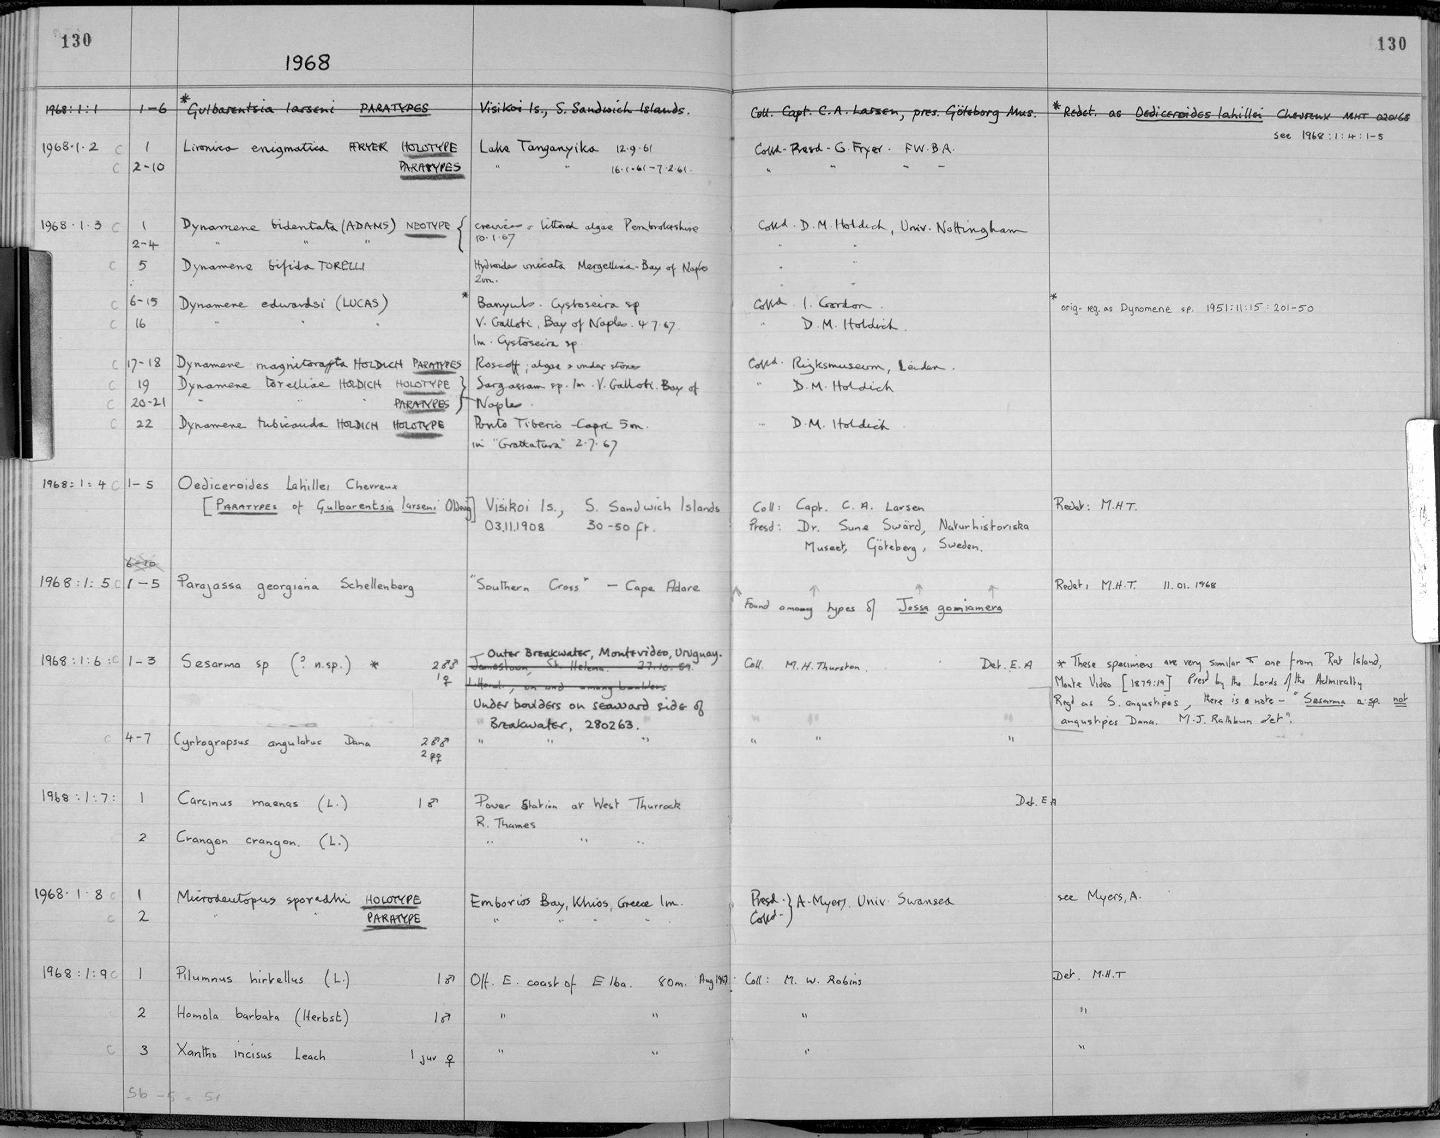 130
130
1968
1968:1:1 1-6 *Gulbarentsia larseni PARATYPES Visikoi Is., S. Sandwich Islands. Coll. Capt. C.A. Larsen, pres. Göteborg Mus. *Redet. as Oediceroides lahillei Chevreux MHT 020168
see 1968:1:4:1-5
1968·1·2 C 1 Lironica enigmatica FRYER HOLOTYPE Lake Tanganyika 12·9·61 Colld-Presd-G. Fryer. F.W.B.A.
C 2-10 PARATYPES " " 16·1·61-7·2·61. " " " "
1968·1·3 C 1 Dynamene bidentata (ADAMS) NEOTYPE { crevices & littoral algae Pembrokeshire Colld. D.M. Holdich, Univ. Nottingham
2-4 " " " 10·1·67 " "
C 5 Dynamene bifida TORELLI Hydroides unicata Mergellina-Bay of Naples " "
2m.
C 6-15 Dynamene edwardsi (LUCAS) * Banyuls. Cystoseira sp Colld. I. Gordon. * orig. reg. as Dynomene sp. 1951:11:15:201-50
C 16 " " " V. Galloti, Bay of Naples. 4·7·67. " D.M. Holdich.
1m. Cystoseira sp.
C 17-18 Dynamene magnitorata HOLDICH PARATYPES Roscoff; algae & under stones Colld. Rijksmuseum, Leiden.
C 19 Dynamene torelliae HOLDICH HOLOTYPE } Sargassum sp. 1m. V. Galloti. Bay of " D.M. Holdich
C 20-21 " " " PARATYPES } Naples.
C 22 Dynamene tubicauda HOLDICH HOLOTYPE Ponto Tiberio-Capri 5m. " D.M. Holdich.
in "Grattatura" 2·7·67
1968:1:4 C 1-5 Oediceroides Lahillei Chevreux
[PARATYPES of Gulbarentsia larseni Oldevig] Visikoi Is., S. Sandwich Islands Coll: Capt. C. A. Larsen Redet: M.H.T.
03.11.1908 30-50 ft. Presd: Dr. Sune Swärd, Naturhistoriska
Museet, Göteberg, Sweden.
6-10
1968:1:5 C 1-5 Parajassa georgiana Schellenberg "Southern Cross" - Cape Adare Redet: M.H.T. 11.01.1968
Found among types of Jassa goniamera
Outer Breakwater, Montevideo, Uruguay.
1968:1:6: C 1-3 Sesarma sp (? n.sp.) * 2♂♂ Jamestown, St. Helena. 27.10.59. Coll. M.H. Thurston. Det. E.A * These specimens are very similar to one from Rat Island,
1♀ Littoral, on and among boulders Monte Video [1879:19] Presd by the Lords of the Admiralty
Under boulders on seaward side of Regd as S. angustipes, there is a note - "Sesarma n.sp. not
Breakwater, 280263. angustipes Dana. M.J. Rathbun det".
C 4-7 Cyrtograpsus angulatus Dana 2♂♂ " " " " " "
2♀♀
1968:1:7: 1 Carcinus maenas (L.) 1♂ Power Station at West Thurrock Det. E A
R. Thames
2 Crangon crangon. (L.) " " "
1968·1·8 C 1 Microdeutopus sporadhi HOLOTYPE Emborios Bay, Khios, Greece 1m. Presd. } A. Myers. Univ. Swansea see Myers, A.
C 2 " " PARATYPE " " " " " Colld-
1968:1:9 C 1 Pilumnus hirtellus (L.) 1♂ Off. E. coast of Elba. 80m. Aug 1967. Coll: M. W. Robins Det. M.H.T
2 Homola barbata (Herbst) 1♂ " " " "
C 3 Xantho incisus Leach 1 juv ♀ " " " "
56-5 = 51